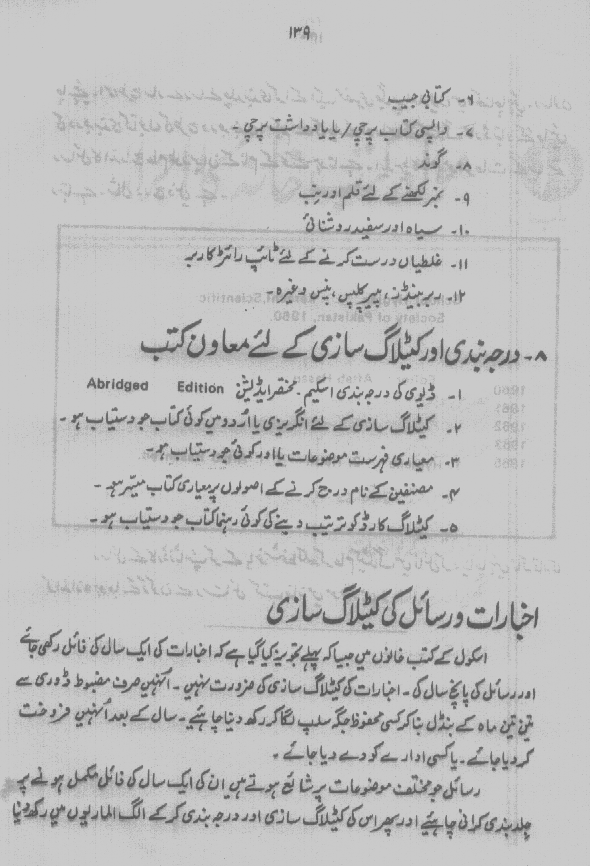 ۱۳۹
۶۔ کتابی جیب
۷۔ واپسی کتاب پرچی / یا یادداشت پرچی ۔
۸۔ گوند
۹۔ نمبر لکھنے کے لئے قلم اور نب
۱۰۔ سیاہ اور سفید روشنائی
۱۱۔ غلطیاں درست کرنے کے لئے ٹائپ رائٹر کا ربر
۱۲۔ ربر بینڈز، پیپر کلپس، پنس وغیرہ۔
۸۔ درجہ بندی اور کیٹلاگ سازی کے لئے معاون کتب
۱۔ ڈیوی کی درجہ بندی اسکیم ۔ مختصر ایڈیشن Abridged Edition
۲۔ کیٹلاگ سازی کے لئے انگریزی یا اُردو میں کوئی کتاب جو دستیاب ہو ۔
۳۔ معیاری فہرست موضوعات یا اور کوئی جو دستیاب ہو۔
۴۔ مصنفین کے نام درج کرنے کے اصولوں پر معیاری کتاب میسر ہو ۔
۵۔ کیٹلاگ کارڈ کو ترتیب دینے کی کوئی رہنما کتاب جو دستیاب ہو ۔
اخبارات و رسائل کی کیٹلاگ سازی
اسکول کے کتب خانوں میں جیسا کہ پہلے تجویز کیا گیا ہے کہ اخبارات کی ایک سال کی فائل رکھی جائے
اور رسائل کی پانچ سال کی ۔ اخبارات کی کیٹلاگ سازی کی ضرورت نہیں ۔ اُنہیں صرف مضبوط ڈوری سے
تین تین ماہ کے بنڈل بنا کر کسی محفوظ جگہ سلپ لگا کر رکھ دینا چاہئیے ۔ سال کے بعد اُنہیں فروخت
کر دیا جائے ۔ یا کسی ادارے کو دے دیا جائے ۔
رسائل جو مختلف موضوعات پر شائع ہوتے ہیں ان کی ایک سال کی فائل مکمل ہونے پر
جلد بندی کرانی چاہئیے اور پھر اس کی کیٹلاگ سازی اور درجہ بندی کر کے الگ الماریوں میں رکھ دینا